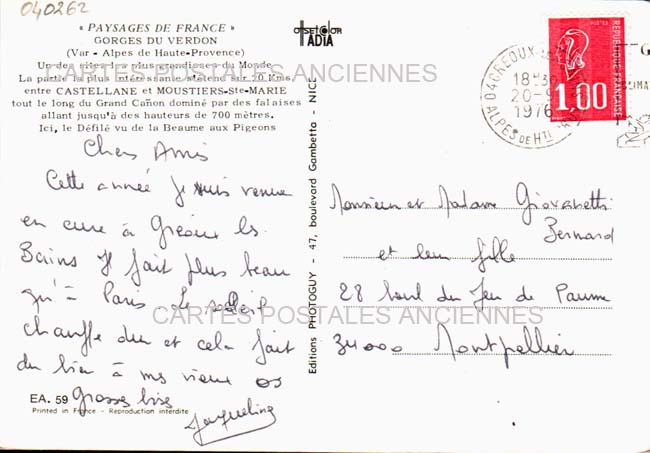 040262
« PAYSAGES DE FRANCE »
GORGES DU VERDON
(Var - Alpes de Haute-Provence)
Un des sites les plus grandioses du Monde
La partie la plus intéressante s'étend sur 20 Kms,
entre CASTELLANE et MOUSTIERS-Ste-MARIE
tout le long du Grand Cañon dominé par des falaises
allant jusqu'à des hauteurs de 700 mètres.
Ici, le Défilé vu de la Beaume aux Pigeons
Chers Amis
Cette année je suis venue
en cure à Gréoux les
Bains Il fait plus beau
qu'à Paris le soleil
chauffe dur et cela fait
du bien à mes vieux os
Grosses bises
Jacqueline
EA. 59
Printed in France - Reproduction interdite
offset color
TADIA
Editions PHOTOGUY - 47, boulevard Gambetta - NICE
04 GREOUX
18-30
20-9
1976
ALPES DE Hte
POSTES
1,00
REPUBLIQUE FRANÇAISE
Monsieur et Madame Giovanetti
Bernard
et leur fille
28 boul du Jeu de Paume
34000 Montpellier
CARTES POSTALES ANCIENNES
CARTES POSTALES ANCIENNES